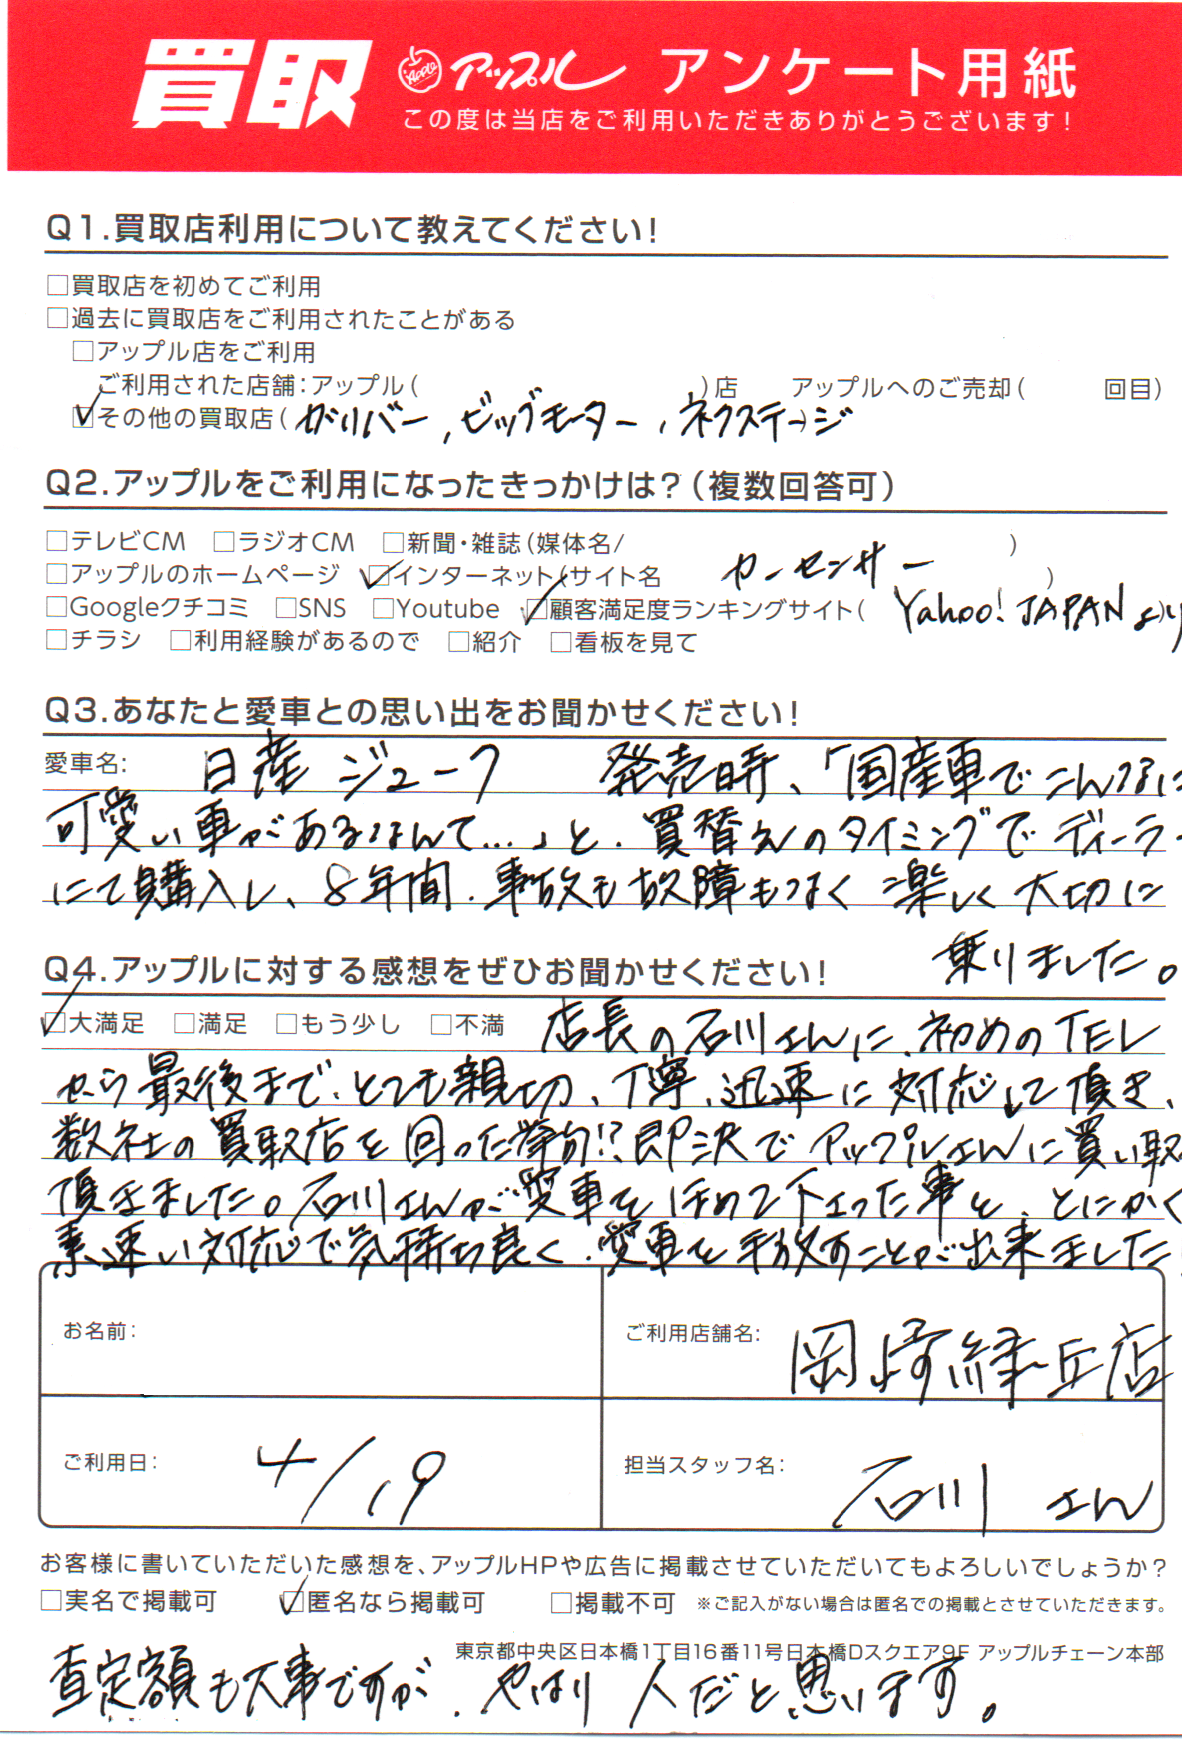 買取 アップル アンケート用紙
この度は当店をご利用いただきありがとうございます！
Q1.買取店利用について教えてください！
□買取店を初めてご利用
□過去に買取店をご利用されたことがある
□アップル店をご利用
ご利用された店舗：アップル（　）店　アップルへのご売却（　回目）
☑その他の買取店（ガリバー，ビッグモーター，ネクステージ
Q2.アップルをご利用になったきっかけは？（複数回答可）
□テレビCM □ラジオCM □新聞・雑誌（媒体名/　）
□アップルのホームページ ☑インターネット（サイト名 カーセンサー ）
□Googleクチコミ □SNS □Youtube ☑顧客満足度ランキングサイト（ Yahoo! JAPANより
□チラシ □利用経験があるので □紹介 □看板を見て
Q3.あなたと愛車との思い出をお聞かせください！
愛車名： 日産 ジューク 発売時、「国産車でこんなに
可愛い車があるなんて…」と、買替えのタイミングでディーラー
にて購入し、8年間、事故も故障もなく 楽しく大切に
乗りました。
Q4.アップルに対する感想をぜひお聞かせください！
☑大満足 □満足 □もう少し □不満 店長の石川さんに、初めのTEL
から最後まで、とても親切、丁寧、迅速に対応して頂き、
数社の買取店を回った挙句!?即決でアップルさんに買い取
頂きました。石川さんが愛車をほめて下さった事と、とにかく
素速い対応で気持ち良く、愛車を手放すことが出来ました
お名前：
ご利用店舗名： 岡崎緑丘店
ご利用日： 4/19
担当スタッフ名： 石川 さん
お客様に書いていただいた感想を、アップルHPや広告に掲載させていただいてもよろしいでしょうか？
□実名で掲載可 ☑匿名なら掲載可 □掲載不可 ※ご記入がない場合は匿名での掲載とさせていただきます。
東京都中央区日本橋1丁目16番11号日本橋Dスクエア9F アップルチェーン本部
査定額も大事ですが、やはり人だと思います。